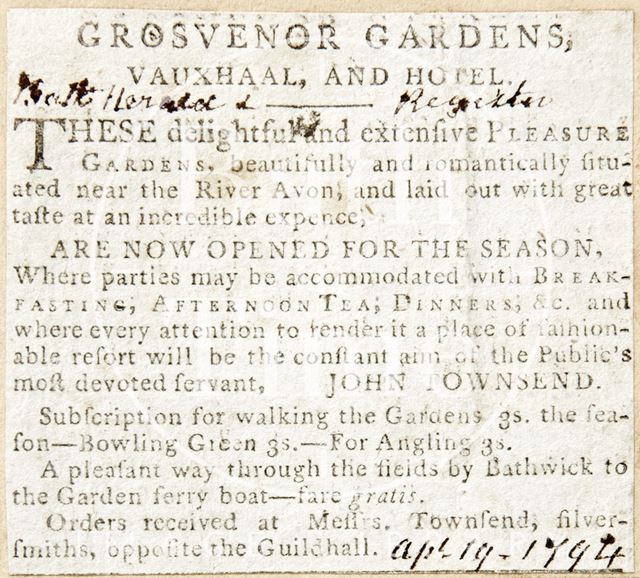 GROSVENOR GARDENS,
VAUXHAAL, AND HOTEL.
Bath Herald & Register
THESE delightful and extenſive PLEASURE
GARDENS, beautifully and romantically ſitu-
ated near the River Avon, and laid out with great
taſte at an incredible expence,
ARE NOW OPENED FOR THE SEASON,
Where parties may be accommodated with BREAK-
FASTING, AFTERNOON TEA, DINNERS, &c. and
where every attention to render it a place of faſhion-
able reſort will be the conſtant aim of the Public's
moſt devoted ſervant, JOHN TOWNSEND.
Subſcription for walking the Gardens 3s. the ſea-
ſon—Bowling Green 3s.—For Angling 3s.
A pleaſant way through the fields by Bathwick to
the Garden ferry boat—fare gratis.
Orders received at Meſſrs. Townſend, ſilver-
ſmiths, oppoſite the Guildhall. Apl. 19 - 1794